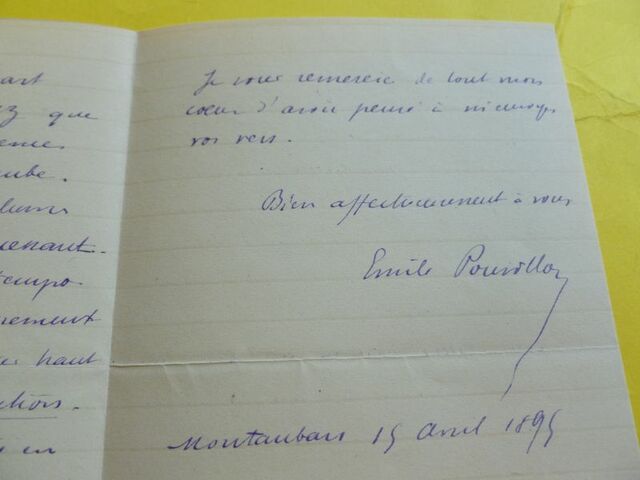 art
ez que
ube.
tenant.
tempo
nement
haut
en
Je vous remercie de tout mon
cœur d'avoir pensé à m'envoyer
vos vers.
Bien affectueusement à vous
Emile Pouvillon
Montauban 15 Avril 1895